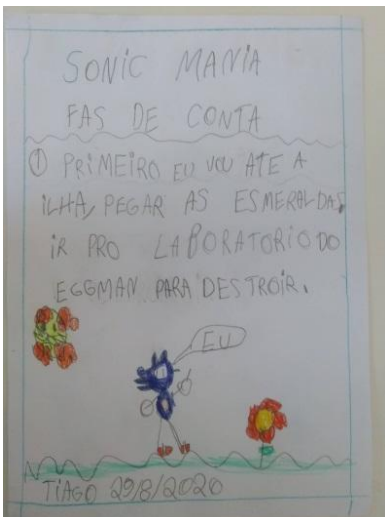 SONIC MANIA
FAS DE CONTA
① PRIMEIRO EU VOU ATE A
ILHA, PEGAR AS ESMERALDAS,
IR PRO LABORATORIO DO
EGGMAN PARA DESTROIR.
EU
TIAGO 29/8/2020